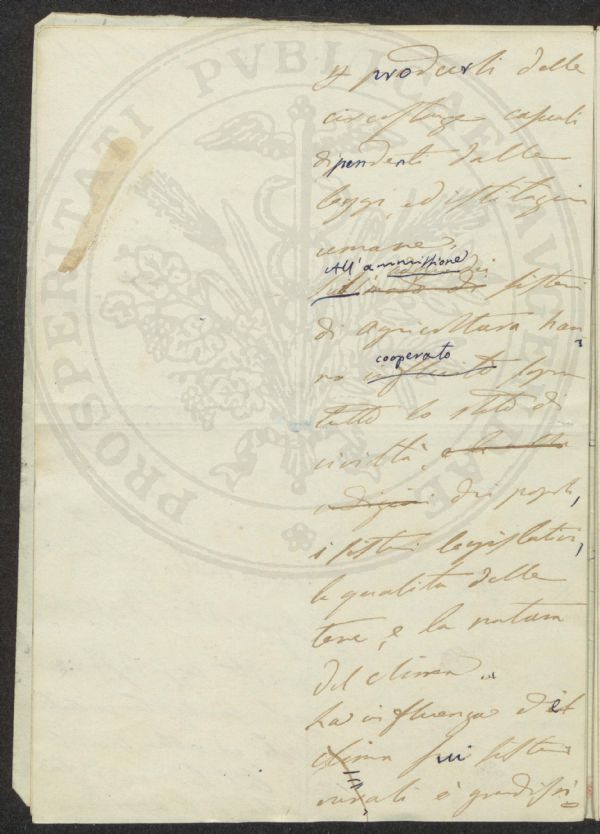 PROSPERITATI PVBLICAE AVGENDAE
e prodursi dalle
circostanze casuali
dipendenti dalle
leggi, ed istituzioni
umane.
All'ammissione
dei sistemi
di agricoltura han,
cooperato
no sopra
tutto lo stato di
civiltà, e la
dei popoli,
i sistemi legislativi,
la qualità delle
terre, e la natura
del clima.
La influenza del
clima sui sistemi
rurali è grandissi=